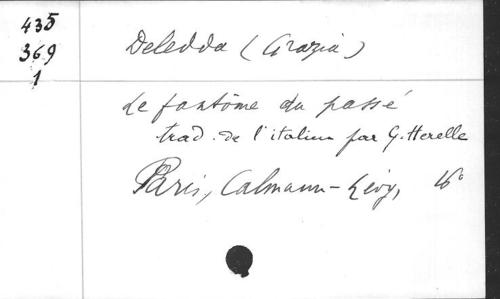 435
369
1
Deledda (Grazia)
Le fantôme du passé
trad. de l'italien par G. Herelle
Paris, Calmann-Lévy, 16°